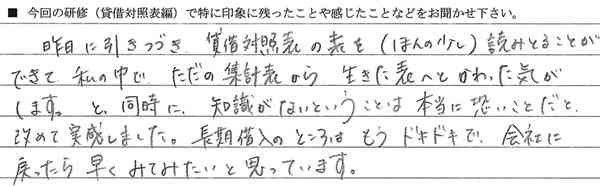 ■ 今回の研修（貸借対照表編）で特に印象に残ったことや感じたことなどをお聞かせ下さい。
昨日に引きつづき 貸借対照表の表を（ほんの少し）読みとることが
できて 私の中で ただの集計表から 生きた表へとかわった気が
します。と、同時に、知識がないということは本当に恐いことだと
改めて実感しました。長期借入のところは もう ドキドキで、会社に
戻ったら早くみてみたいと思っています。